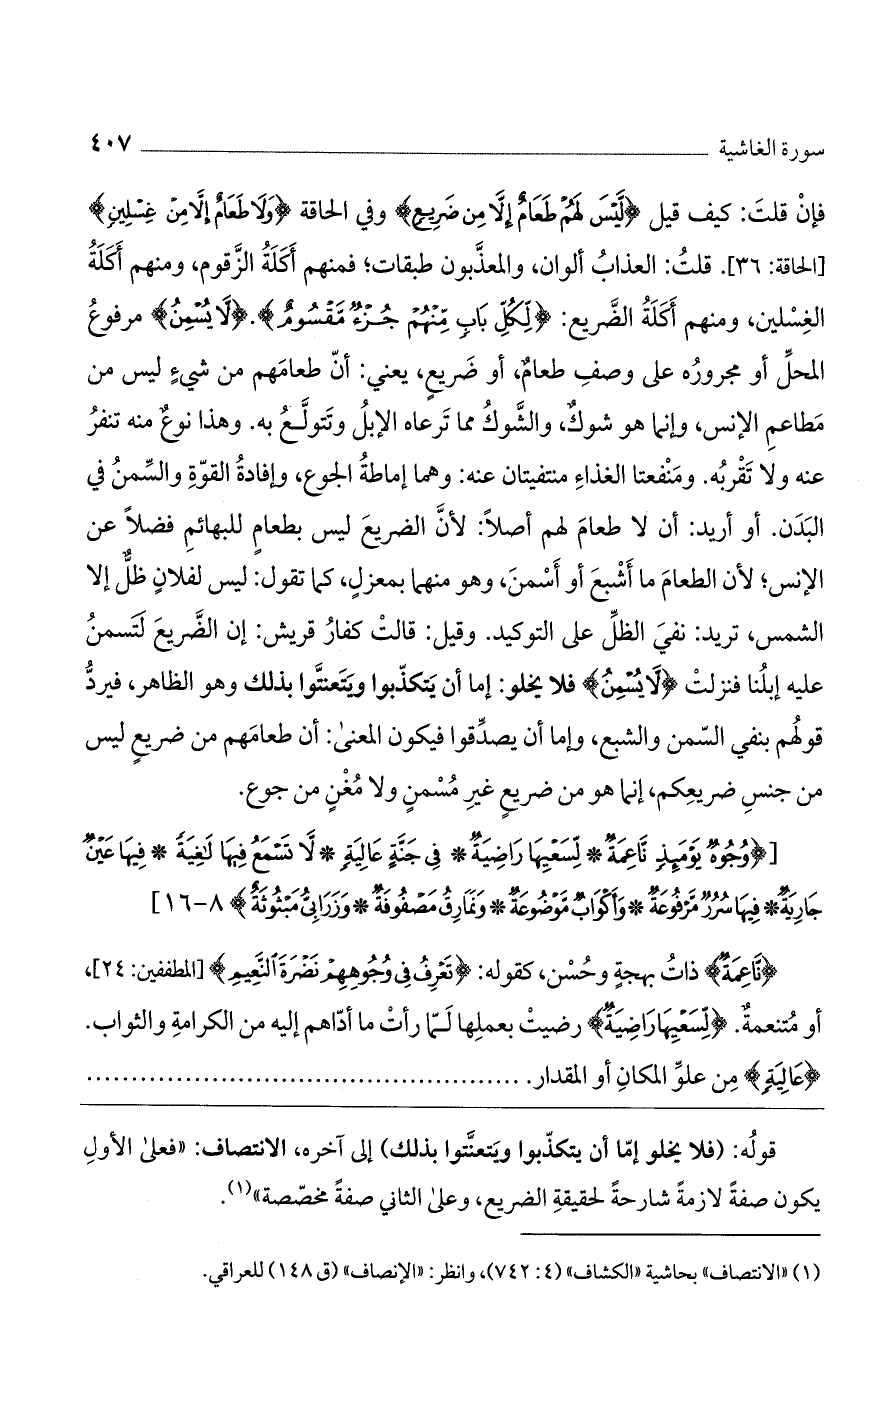 سورة الغاشية ٤٠٧
فإنْ قلتَ: كيف قيل ﴿لَّيْسَ لَهُمْ طَعَامٌ إِلَّا مِن ضَرِيعٍ﴾ وفي الحاقة ﴿وَلَا طَعَامٌ إِلَّا مِنْ غِسْلِينٍ﴾
[الحاقة: ٣٦]. قلتُ: العذابُ ألوان، والمعذَّبون طبقات؛ فمنهم أَكَلَةُ الزَّقوم، ومنهم أَكَلَةُ
الغِسْلين، ومنهم أَكَلَةُ الضَّريع: ﴿لِكُلِّ بَابٍ مِّنْهُمْ جُزْءٌ مَّقْسُومٌ﴾. ﴿لَّا يُسْمِنُ﴾ مرفوعُ
المحلِّ أو مجرورُه على وصفِ طعامٌ، أو ضَريعٍ، يعني: أنّ طعامَهم من شيءٍ ليس من
مَطاعمِ الإنس، وإنما هو شوكٌ، والشَّوكُ مما تَرعاه الإبلُ وتَتولَّعُ به. وهذا نوعٌ منه تنفرُ
عنه ولا تَقْربُه. ومَنْفعتا الغذاءِ منتفيتان عنه: وهما إماطةُ الجوع، وإفادةُ القوّةِ والسِّمنُ في
البَدَن. أو أريد: أن لا طعامَ لهم أصلاً: لأنَّ الضريعَ ليس بطعامٍ للبهائمِ فضلاً عن
الإنس؛ لأن الطعامَ ما أَشْبعَ أو أَسْمنَ، وهو منهما بمعزلٍ، كما تقول: ليس لفلانٍ ظلٌّ إلا
الشمس، تريد: نفيَ الظلِّ على التوكيد. وقيل: قالتْ كفارُ قريش: إن الضَّريعَ لَتَسمنُ
عليه إبلُنا فنزلتْ ﴿لَّا يُسْمِنُ﴾ فلا يخلو: إما أن يَتكذّبوا ويَتَعنتَّوا بذلك وهو الظاهر، فيردُّ
قولُهم بنفي السّمن والشبع، وإما أن يصدِّقوا فيكون المعنىٰ: أن طعامَهم من ضريعٍ ليس
من جنسِ ضريعِكم، إنما هو من ضريعٍ غيرِ مُسْمنٍ ولا مُغْنٍ من جوع.
[﴿وُجُوهٌ يَوْمَئِذٍ نَّاعِمَةٌ * لِّسَعْيِهَا رَاضِيَةٌ * فِى جَنَّةٍ عَالِيَةٍ * لَّا تَسْمَعُ فِيهَا لَٰغِيَةً * فِيهَا عَيْنٌ
جَارِيَةٌ * فِيهَا سُرُرٌ مَّرْفُوعَةٌ * وَأَكْوَابٌ مَّوْضُوعَةٌ * وَنَمَارِقُ مَصْفُوفَةٌ * وَزَرَابِىُّ مَبْثُوثَةٌ﴾ ٨-١٦]
﴿نَّاعِمَةٌ﴾ ذاتُ بهجةٍ وحُسْن، كقوله: ﴿تَعْرِفُ فِى وُجُوهِهِمْ نَضْرَةَ ٱلنَّعِيمِ﴾ [المطففين: ٢٤]،
أو مُتنعمةٌ. ﴿لِّسَعْيِهَا رَاضِيَةٌ﴾ رضيتْ بعملِها لَمّا رأتْ ما أدّاهم إليه من الكرامةِ والثواب.
﴿عَالِيَةٍ﴾ مِن علوِّ المكانِ أو المقدار. ................................................
قولُه: (فلا يخلو إمّا أن يتكذّبوا ويَتعنَّتوا بذلك) إلى آخره، الانتصاف: «فعلىٰ الأولِ
يكون صفةً لازمةً شارحةً لحقيقةِ الضريع، وعلىٰ الثاني صفةً مخصّصة»(١).
(١) «الانتصاف» بحاشية «الكشاف» (٤: ٧٤٢)، وانظر: «الإنصاف» (ق ١٤٨) للعراقي.